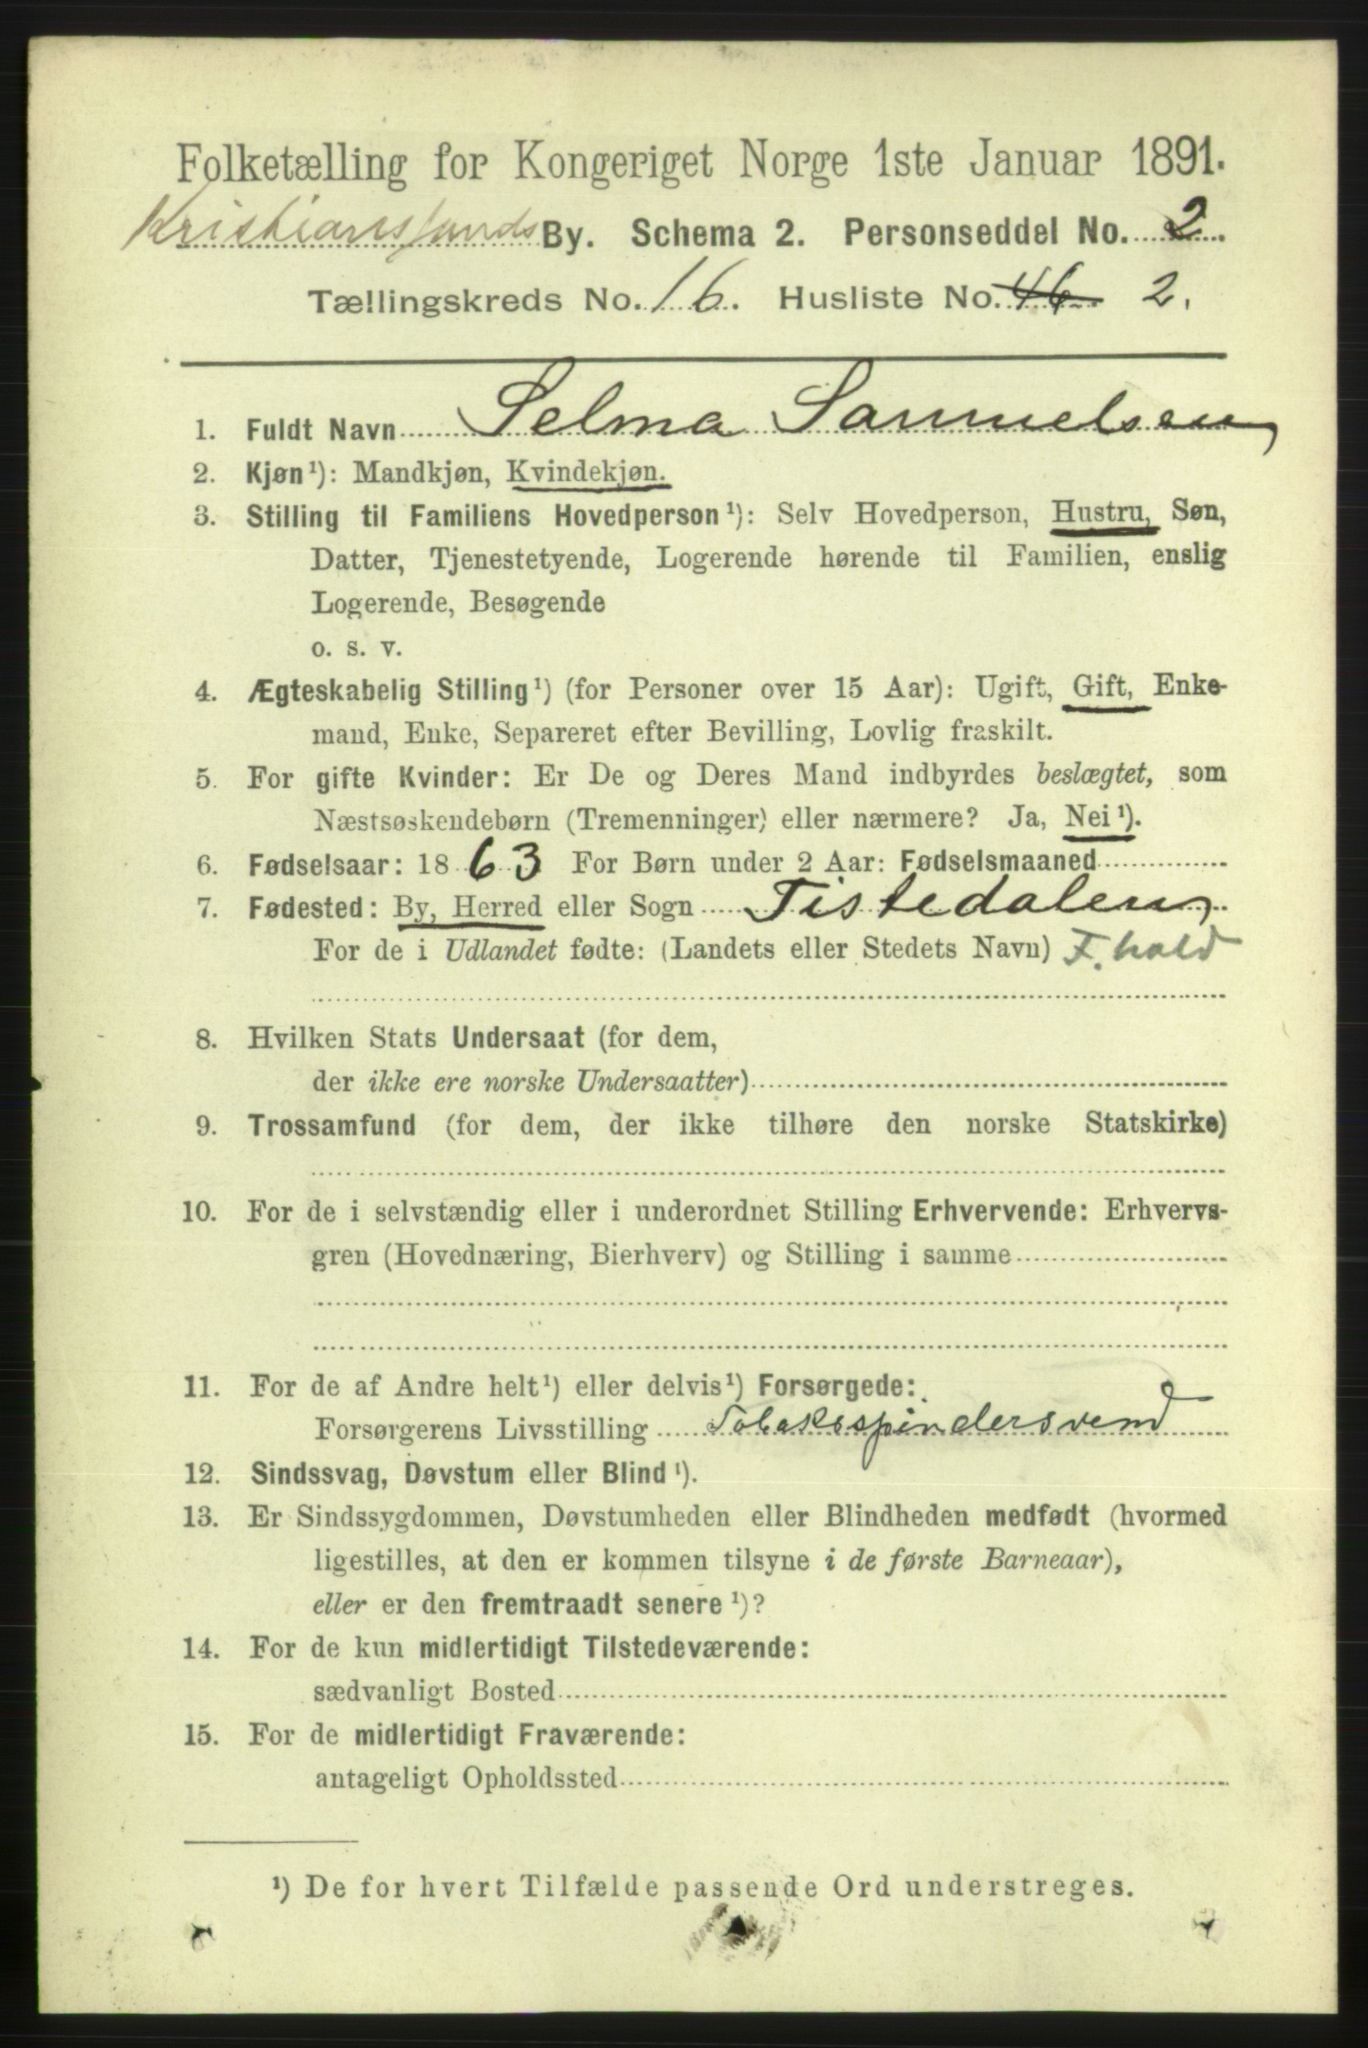 Folketælling for Kongeriget Norge 1ste Januar 1891.
Kristianssands By. Schema 2. Personseddel No. 2
Tællingskreds No. 16. Husliste No. 46. 2.
1. Fuldt Navn Selma Samuelsen
2. Kjøn¹): Mandkjøn, Kvindekjøn.
3. Stilling til Familiens Hovedperson¹): Selv Hovedperson, Hustru, Søn,
Datter, Tjenestetyende, Logerende hørende til Familien, enslig
Logerende, Besøgende
o. s. v.
4. Ægteskabelig Stilling¹) (for Personer over 15 Aar): Ugift, Gift, Enke-
mand, Enke, Separeret efter Bevilling, Lovlig fraskilt.
5. For gifte Kvinder: Er De og Deres Mand indbyrdes beslægtet, som
Næstsøskendebørn (Tremenninger) eller nærmere? Ja, Nei¹).
6. Fødselsaar: 1863 For Børn under 2 Aar: Fødselsmaaned
7. Fødested: By, Herred eller Sogn Tistedalen,
For de i Udlandet fødte: (Landets eller Stedets Navn) F.hald
8. Hvilken Stats Undersaat (for dem,
der ikke ere norske Undersaatter)
9. Trossamfund (for dem, der ikke tilhøre den norske Statskirke)
10. For de i selvstændig eller i underordnet Stilling Erhvervende: Erhvervs-
gren (Hovednæring, Bierhverv) og Stilling i samme
11. For de af Andre helt¹) eller delvis¹) Forsørgede:
Forsørgerens Livsstilling Tobakspindersvend
12. Sindssvag, Døvstum eller Blind¹).
13. Er Sindssygdommen, Døvstumheden eller Blindheden medfødt (hvormed
ligestilles, at den er kommen tilsyne i de første Barneaar),
eller er den fremtraadt senere¹)?
14. For de kun midlertidigt Tilstedeværende:
sædvanligt Bosted
15. For de midlertidigt Fraværende:
antageligt Opholdssted
¹) De for hvert Tilfælde passende Ord understreges.